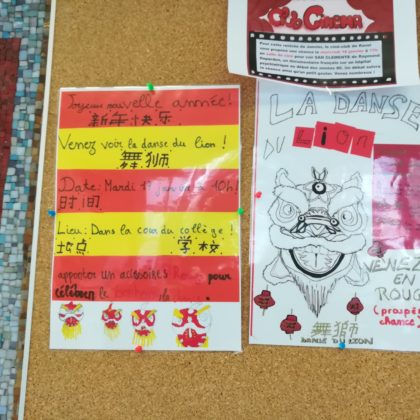 Club Cinéma
Pour cette rentrée de Janvier, le ciné-club de Raoul
vous propose une séance le mercredi 18 janvier à
SAN CLEMENTE de Raymond
Depardon, un documentaire français sur un hôpital
psychiatrique au début des années 80. Un débat suivra
la séance ainsi qu'un petit goûter. Venez nombreux !
Joyeuse nouvelle année!
新年快乐
Venez voir la danse du lion !
舞狮
Date: Mardi 17 janvier à 10h!
时间
Lieu: Dans la cour du collège !
地点 学校
apporter un accessoires pour
célébrer le
LA DANSE
DU Lion
VENEZ
EN
ROUGE
(prospérité
chance)
舞獅
DANSE DU LION